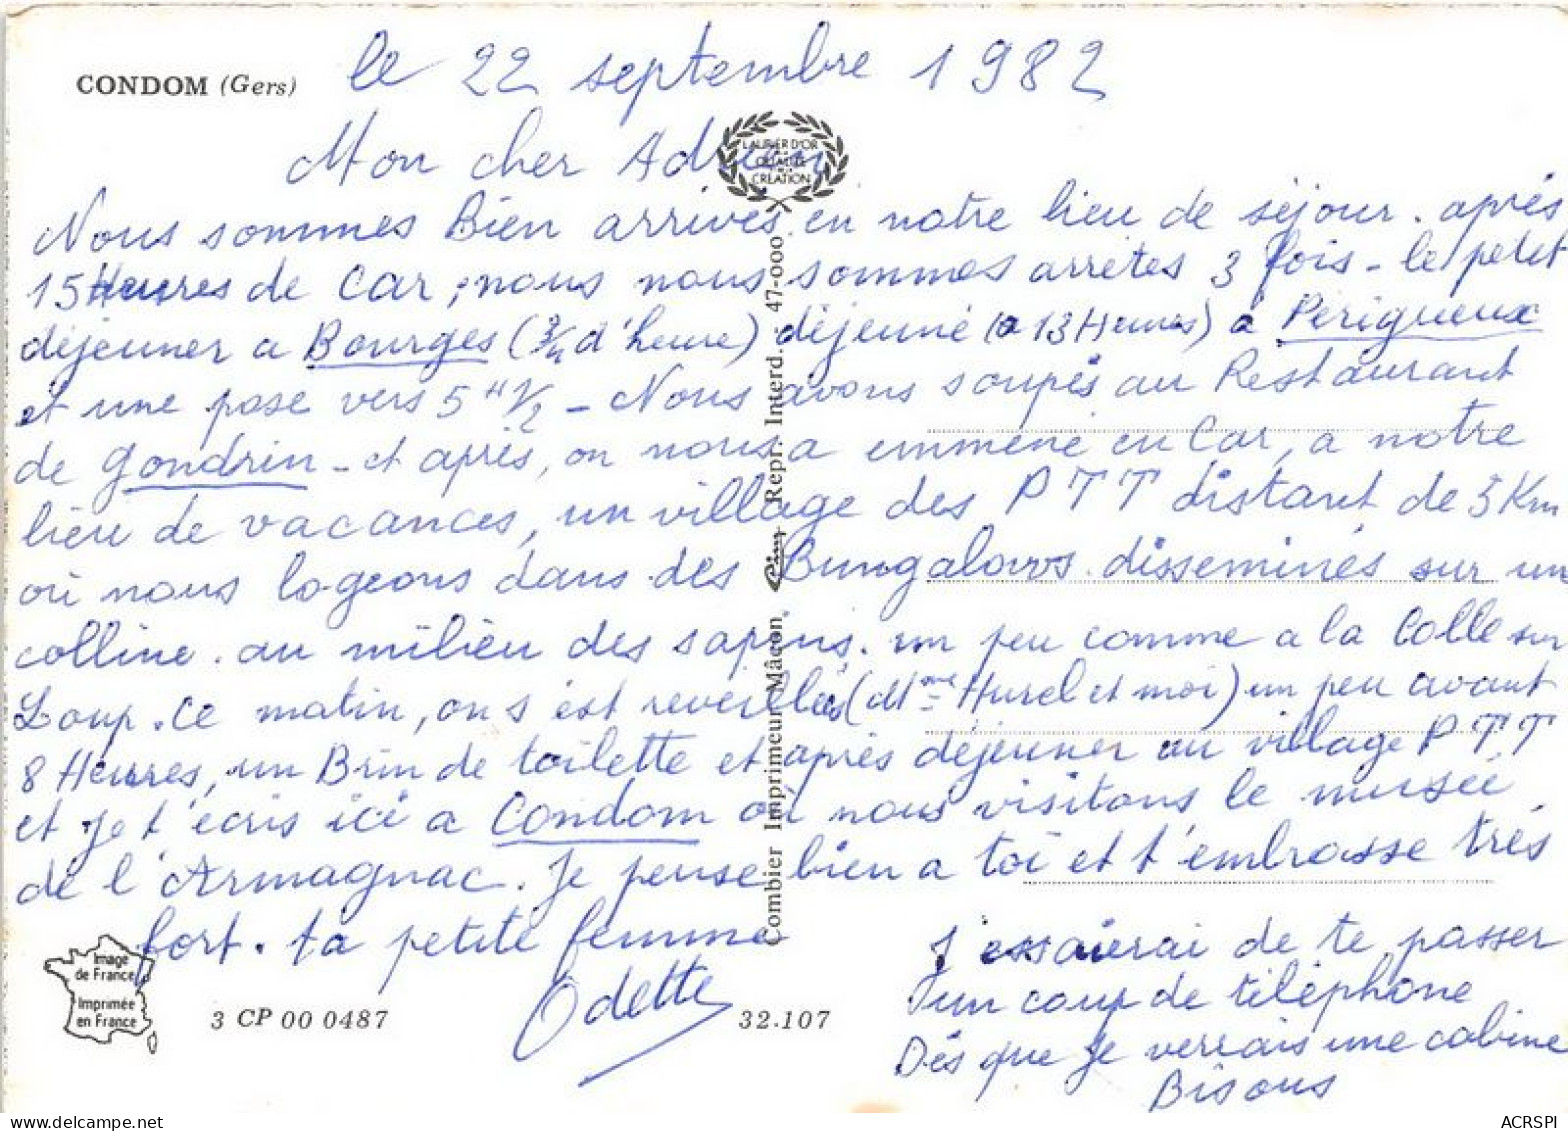 CONDOM (Gers)
le 22 septembre 1982
Mon cher Adrien
LAURIER D'OR
QUALITE
CREATION
Nous sommes Bien arrivés en notre lieu de séjour. après
15 Heures de Car, nous nous sommes arretés 3 fois - le petit
déjeuner a Bourges (3/4 d'heure) déjeuné (a 13 Heures) à Périgueux
et une pose vers 5 H 1/2 - Nous avons soupés au Restaurant
de Gondrin - et après, on nous a emmené en Car, a notre
lieu de vacances, un village des PTT distant de 5 Km
où nous logeons dans des Bungalows disseminés sur un
colline. au milieu des sapins. un peu comme a la Colle sur
Loup. Ce matin, on s'est reveillés (Mme Hurel et moi) un peu avant
8 Heures, un Brin de toilette et après déjeuner au village PTT
et je t'écris ici a Condom où nous visitons le musée
de l'Armagnac. Je pense bien a toi et t'embrasse très
fort. ta petite femme
Odette
J'essaierai de te passer
un coup de téléphone
Dés que je verrais une cabine
Bisous
Combier Imprimeur Mâcon. Cim Repr. Interd. 47-000
Image
de France
Imprimée
en France
3 CP 00 0487
32.107
delcampe.net
ACRSPI